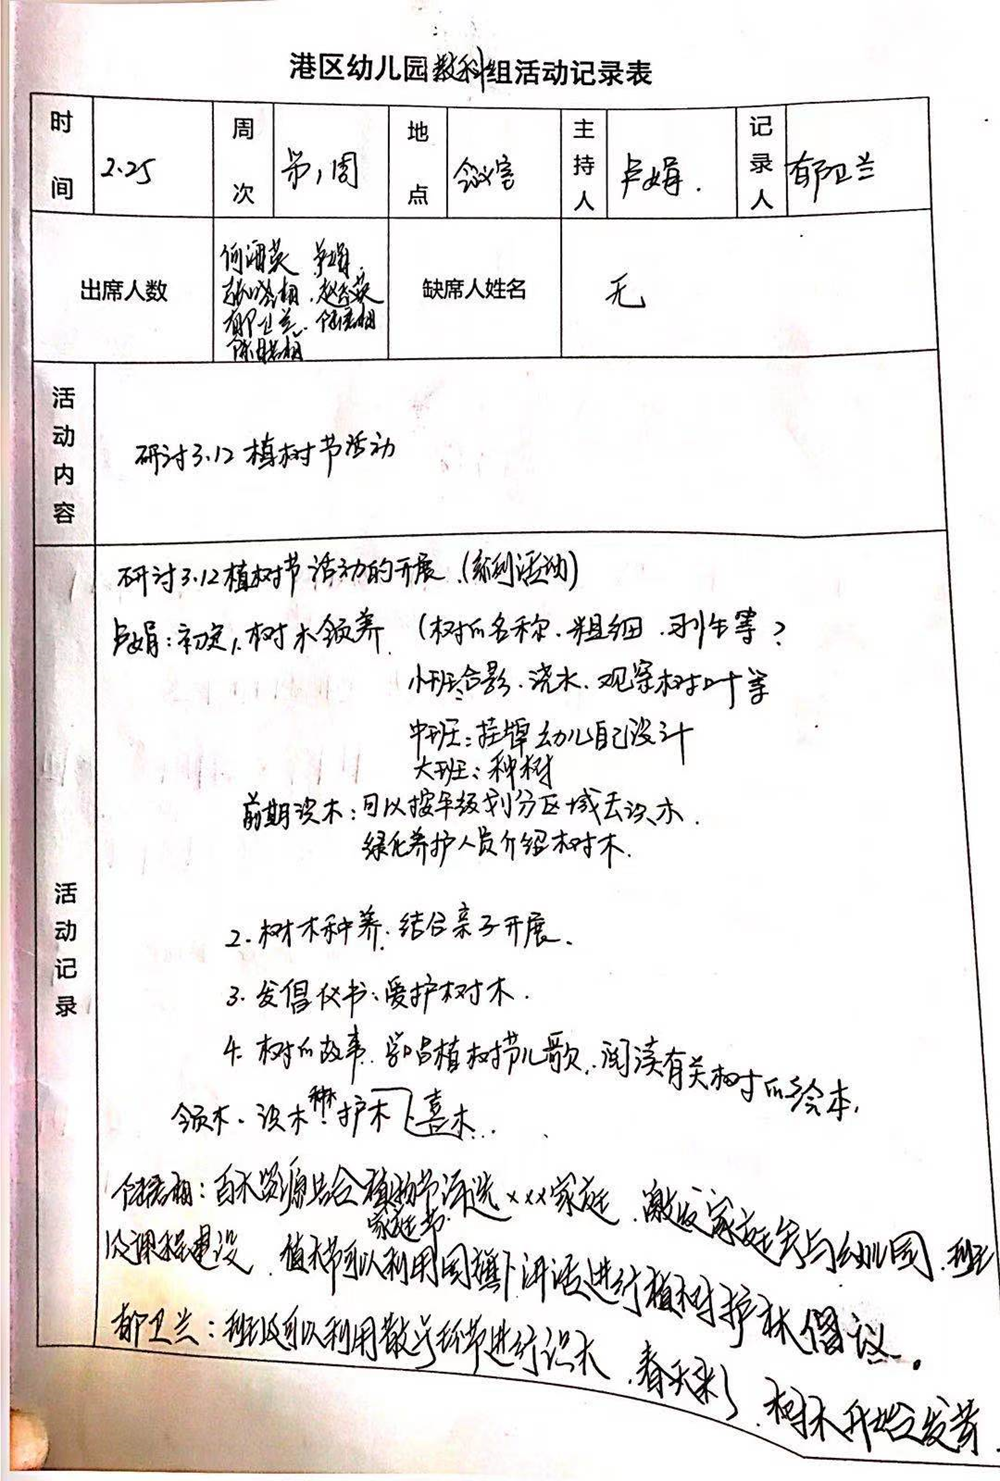 港区幼儿园教科组活动记录表
时间 2.25 周次 第1周 地点 会议室 主持人 卢娟. 记录人 郁卫兰
出席人数 缺席人姓名 无
郁卫兰
活动内容
研讨3.12植树节活动
活动记录
研讨3.12植树节活动的开展.(系列活动)
卢娟:初定1.树木领养 (树的名称.粗细. 等?
小班:合影.浇水.观察树叶等
中班:挂牌幼儿自己设计
大班:种树
前期识木:可以按年级划分区域去识木.
绿化养护人员介绍树木.
2.树木种养.结合亲子开展.
3.发倡议书:爱护树木.
4.树的故事.学唱植树节儿歌.阅读有关树的绘本.
种木
领木.识木.护木 喜木...
百木资源结合植物节评选xxx家庭.激发家庭参与幼儿园.班级
家庭书.
及课程建设. 植树节可以利用国旗下讲话进行植树护林倡议.
郁卫兰:班级可以利用散步环节进行识木.春天来了.树木开始发芽.